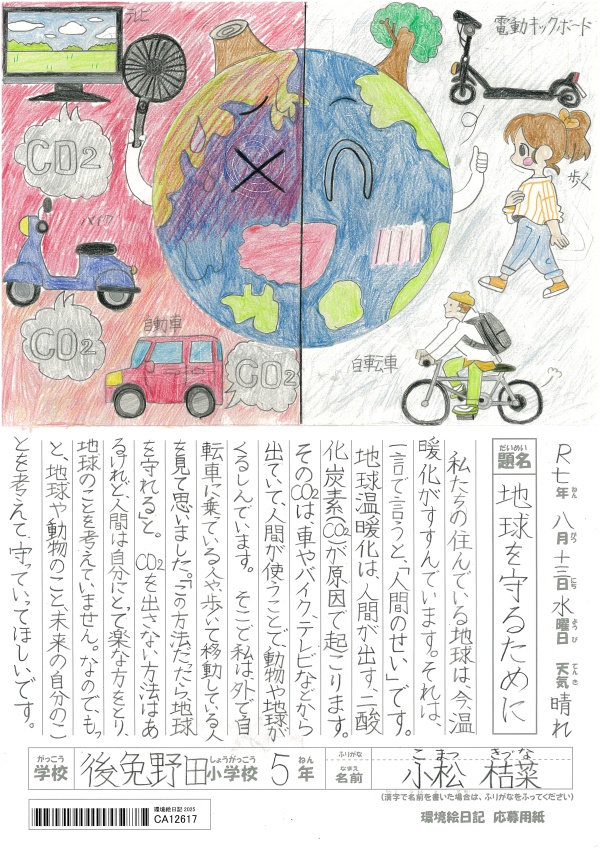 テレビ
CO2
バイク
CO2
自動車
CO2
電動キックボード
歩く
自転車
R七年 八月十三日 水曜日 天気 晴れ
ねん がつ にち ようび てんき
だいめい
題名 地球を守るために
私たちの住んでいる地球は、今、温
暖化がすすんでいます。それは、
一言で言うと、「人間のせい」です。
地球温暖化は、人間が出す、二酸
化炭素(CO2)が原因で起こります。
そのCO2は、車やバイク、テレビなどから
出ていて、人間が使うことで、動物や地球が
くるしんでいます。 そこで私は、外で自
転車に乗っている人や歩いて移動している人
を見て思いました。「この方法だったら、地球
を守れる」と。 CO2を出さない方法はあ
るけれど、人間は自分にとって楽な方をとり、
地球のことを考えていません。なので、もっ
と、地球や動物のこと、未来の自分のこ
とを考えて、守っていってほしいです。
がっこう しょうがっこう ねん ふりがな こまつ きづな
学校 後免野田 小学校 5年 なまえ 名前 小松 桔菜
(漢字で名前を書いた場合は、ふりがなをふってください)
環境絵日記 2025
CA12617
環境絵日記 応募用紙